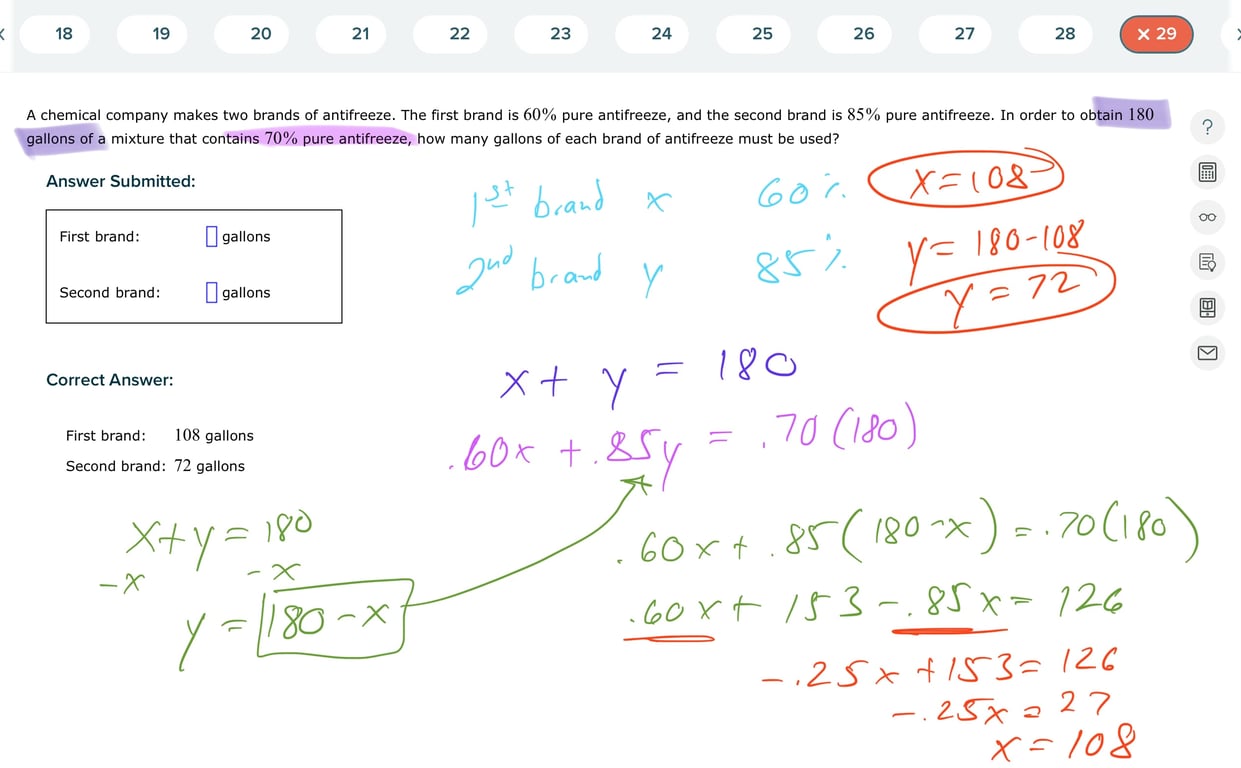 18 19 20 21 22 23 24 25 26 27 28 × 29
A chemical company makes two brands of antifreeze. The first brand is 60% pure antifreeze, and the second brand is 85% pure antifreeze. In order to obtain 180
gallons of a mixture that contains 70% pure antifreeze, how many gallons of each brand of antifreeze must be used?
Answer Submitted:
First brand: gallons
Second brand: gallons
1st brand x 60%
2nd brand y 85%
x=108
y= 180-108
y = 72
Correct Answer:
First brand: 108 gallons
Second brand: 72 gallons
x+ y = 180
.60x +.85y = .70(180)
x+y=180
-x -x
y = 180-x
.60x+.85(180-x)=.70(180)
.60x+ 153-.85x= 126
-.25x +153= 126
-.25x= 27
x=108
?